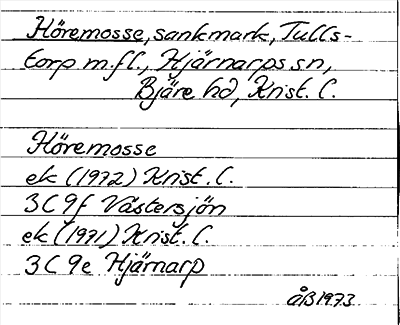 Höremosse, sankmark, Tulls-
torp m.fl., Hjärnarps sn,
Bjäre hd, Krist. C.
Höremosse
ek (1972) Krist. C.
3C 9f Västersjön
ek (1971) Krist. C.
3C 9e Hjärnarp
ÅB1973